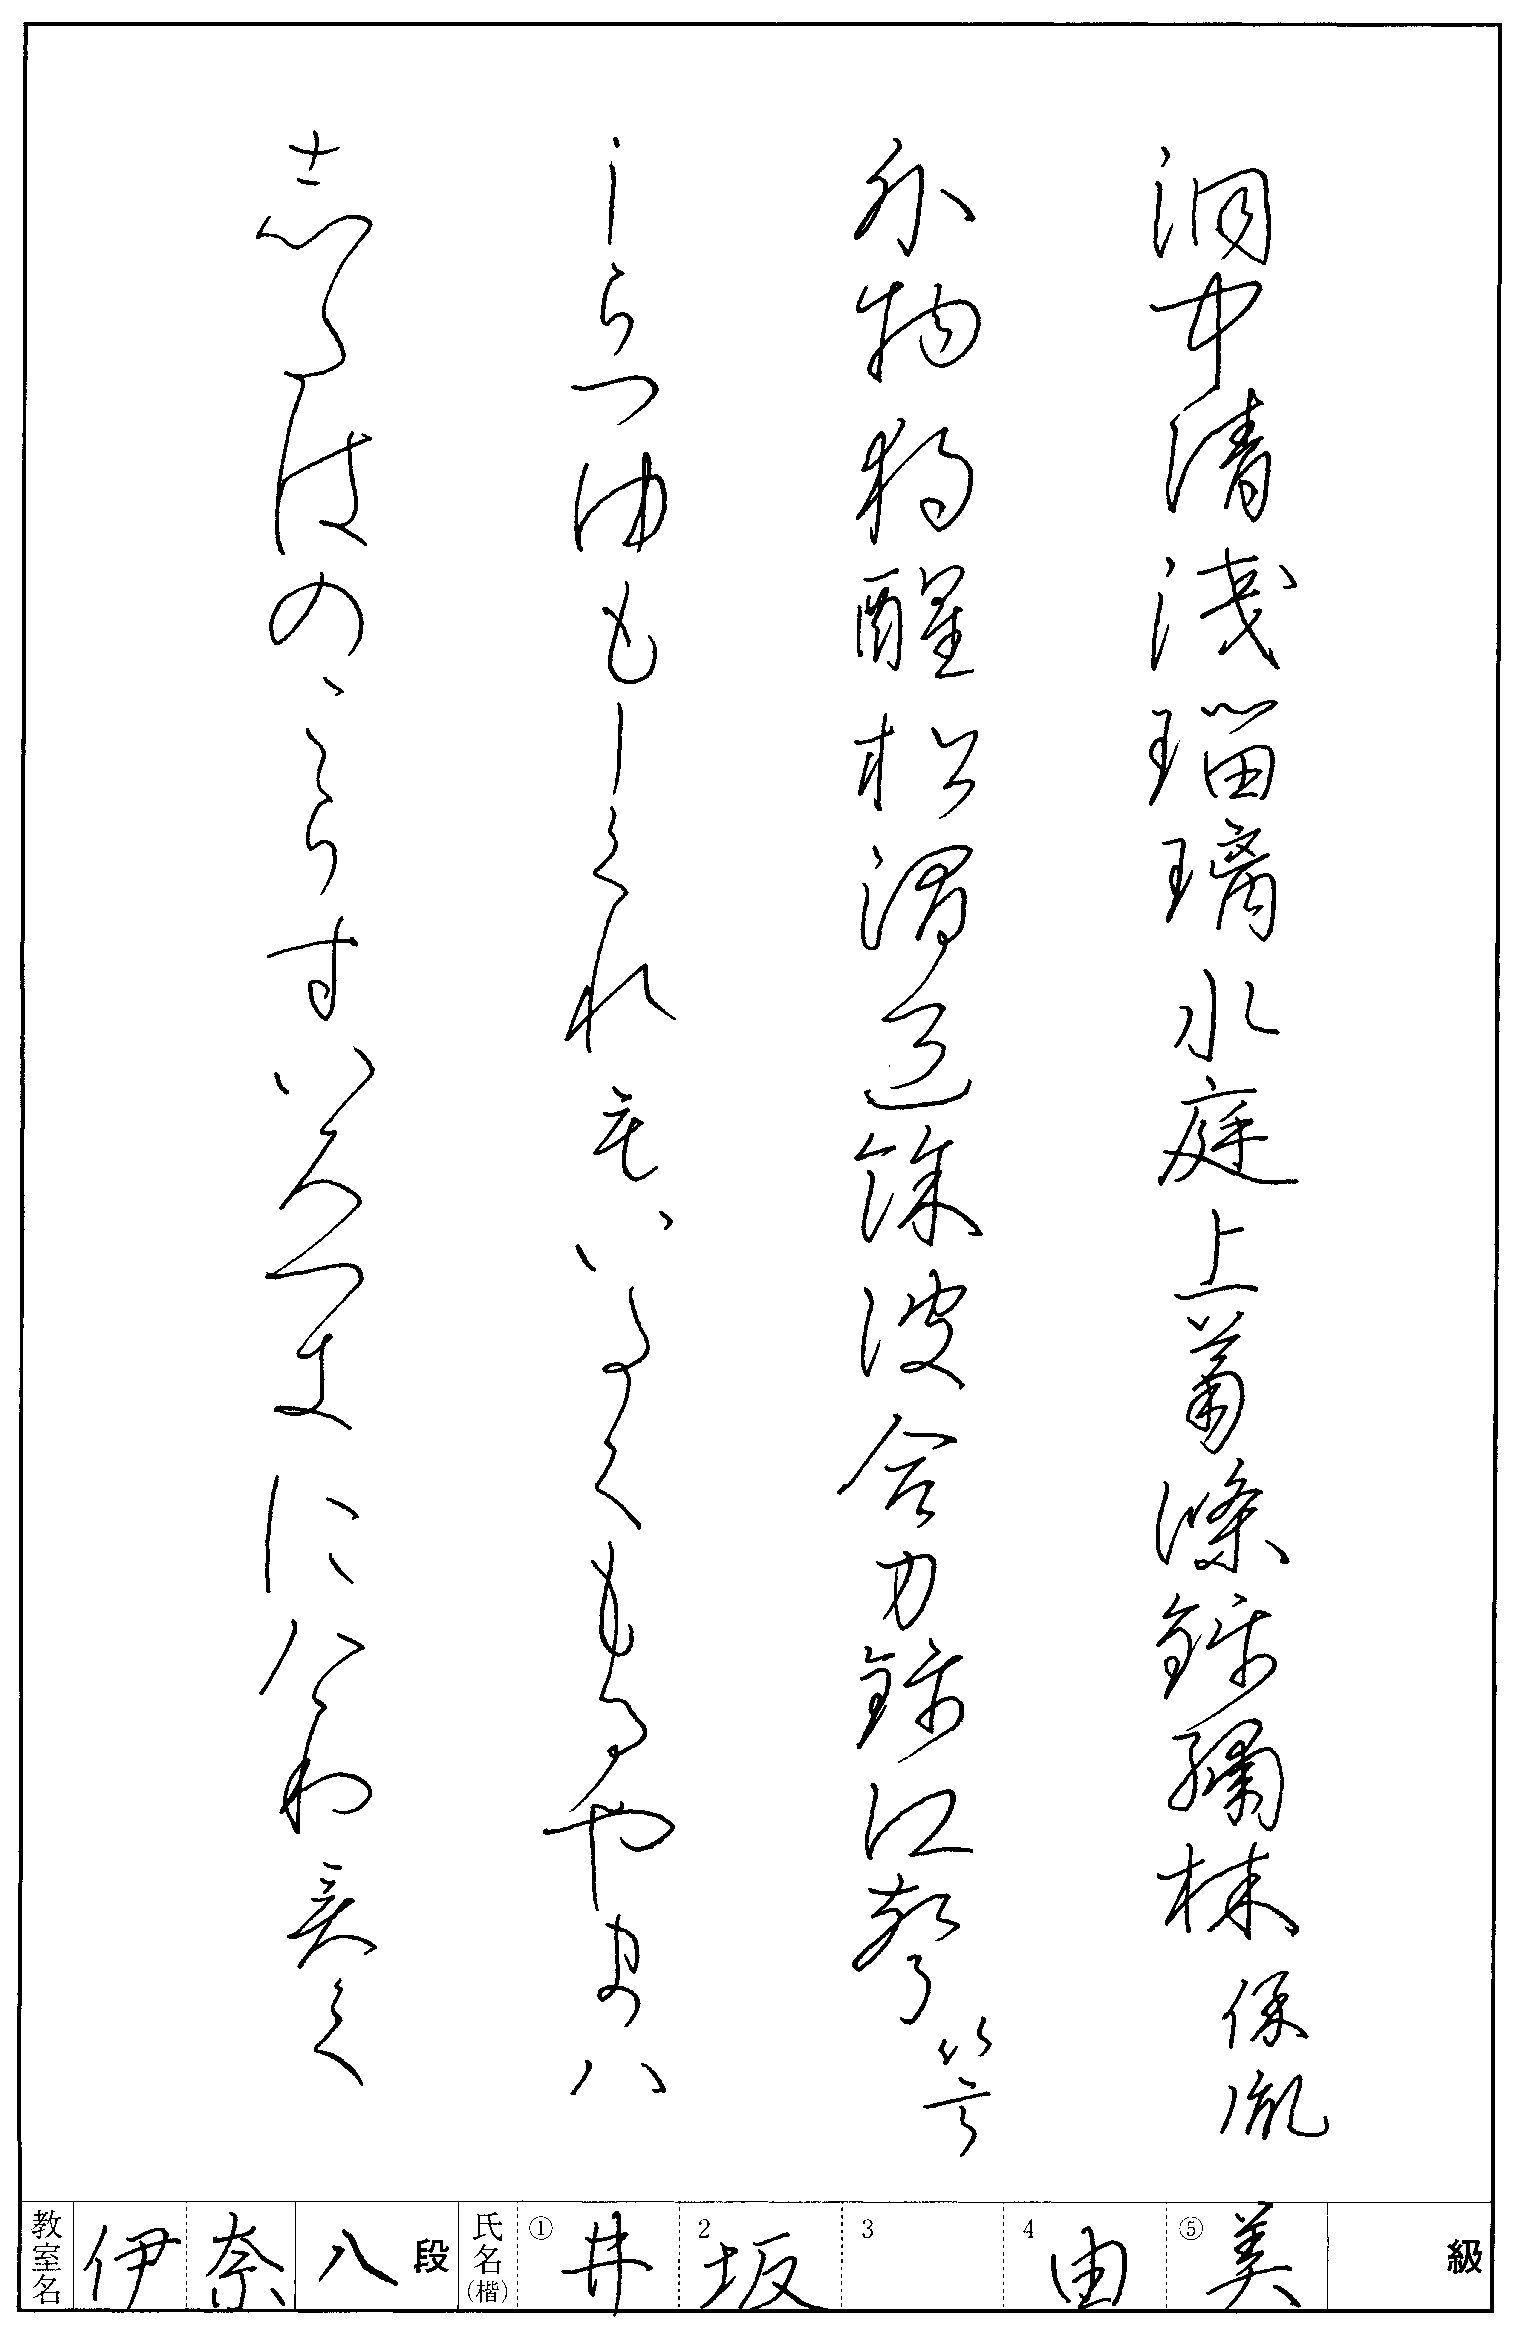 洞中清浅瑠璃水庭上蕭條錦繡林 保胤
外物独醒松澗色餘波合力錦江聲 以言
しらつゆもしくれもいたくもるやまハ
志たはのこらすいろつきにけり 貫之
教室名 伊奈 八段 氏名(楷) ①井 2坂 3 4由 ⑤美 級